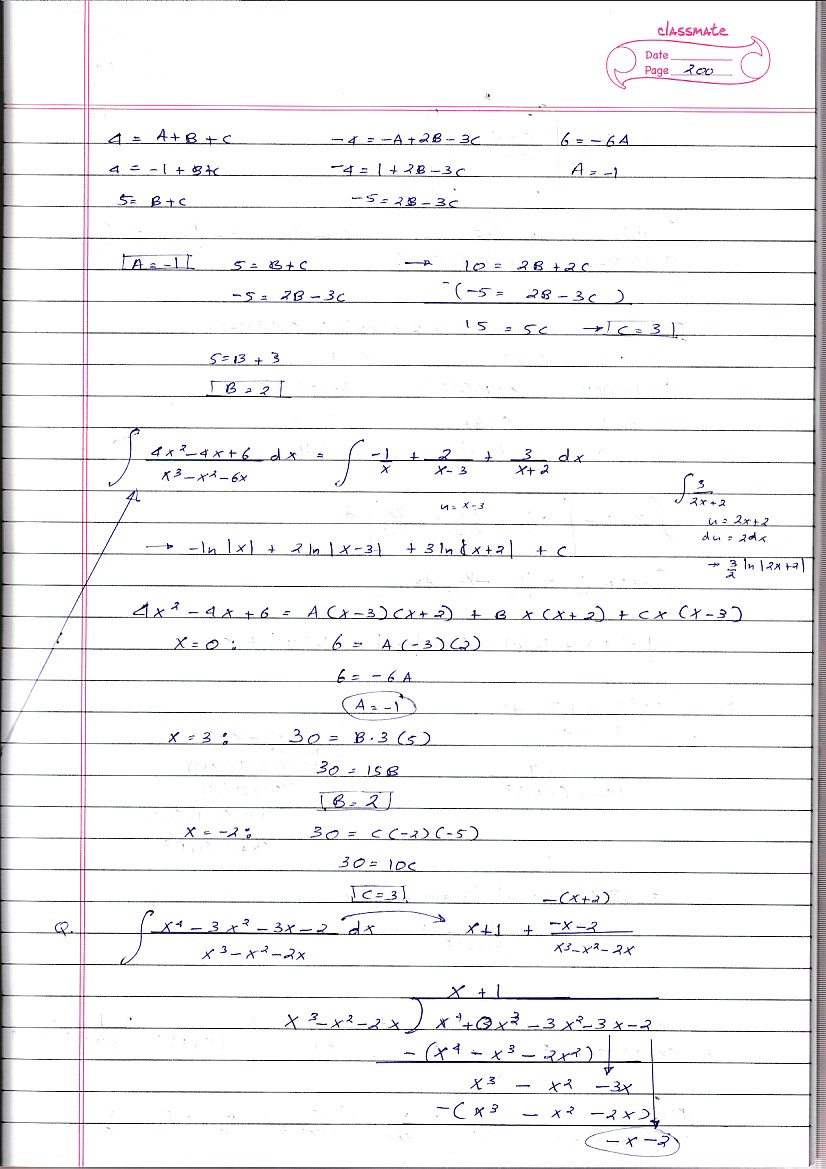 classmate
Date
Page 200
4 = A+B+C -4 = -A+2B-3C 6 = -6A
4 = -1 + B+C -4 = 1 + 2B-3C A = -1
5 = B+C -5 = 2B-3C
A = -1 5 = B+C → 10 = 2B+2C
-5 = 2B-3C -(-5 = 2B-3C)
15 = 5C → C = 3
5 = B + 3
B = 2
∫ (4x²-4x+6)/(x³-x²-6x) dx = ∫ -1/x + 2/(x-3) + 3/(x+2) dx
u = x-3
∫ 3/(2x+2)
u = 2x+2
du = 2dx
→ 3/2 ln|2x+2|
→ -ln|x| + 2ln|x-3| + 3ln|x+2| + C
4x²-4x+6 = A(x-3)(x+2) + Bx(x+2) + Cx(x-3)
x = 0: 6 = A(-3)(2)
6 = -6A
A = -1
x = 3: 30 = B·3(5)
30 = 15B
B = 2
x = -2: 30 = C(-2)(-5)
30 = 10C
C = 3
-(x+2)
Q. ∫ (x⁴-3x²-3x-2)/(x³-x²-2x) dx x+1 + (-x-2)/(x³-x²-2x)
x + 1
x³-x²-2x ) x⁴+0x³-3x²-3x-2
-(x⁴-x³-2x²)
x³ - x² -3x
-(x³ - x² -2x)
-x-2